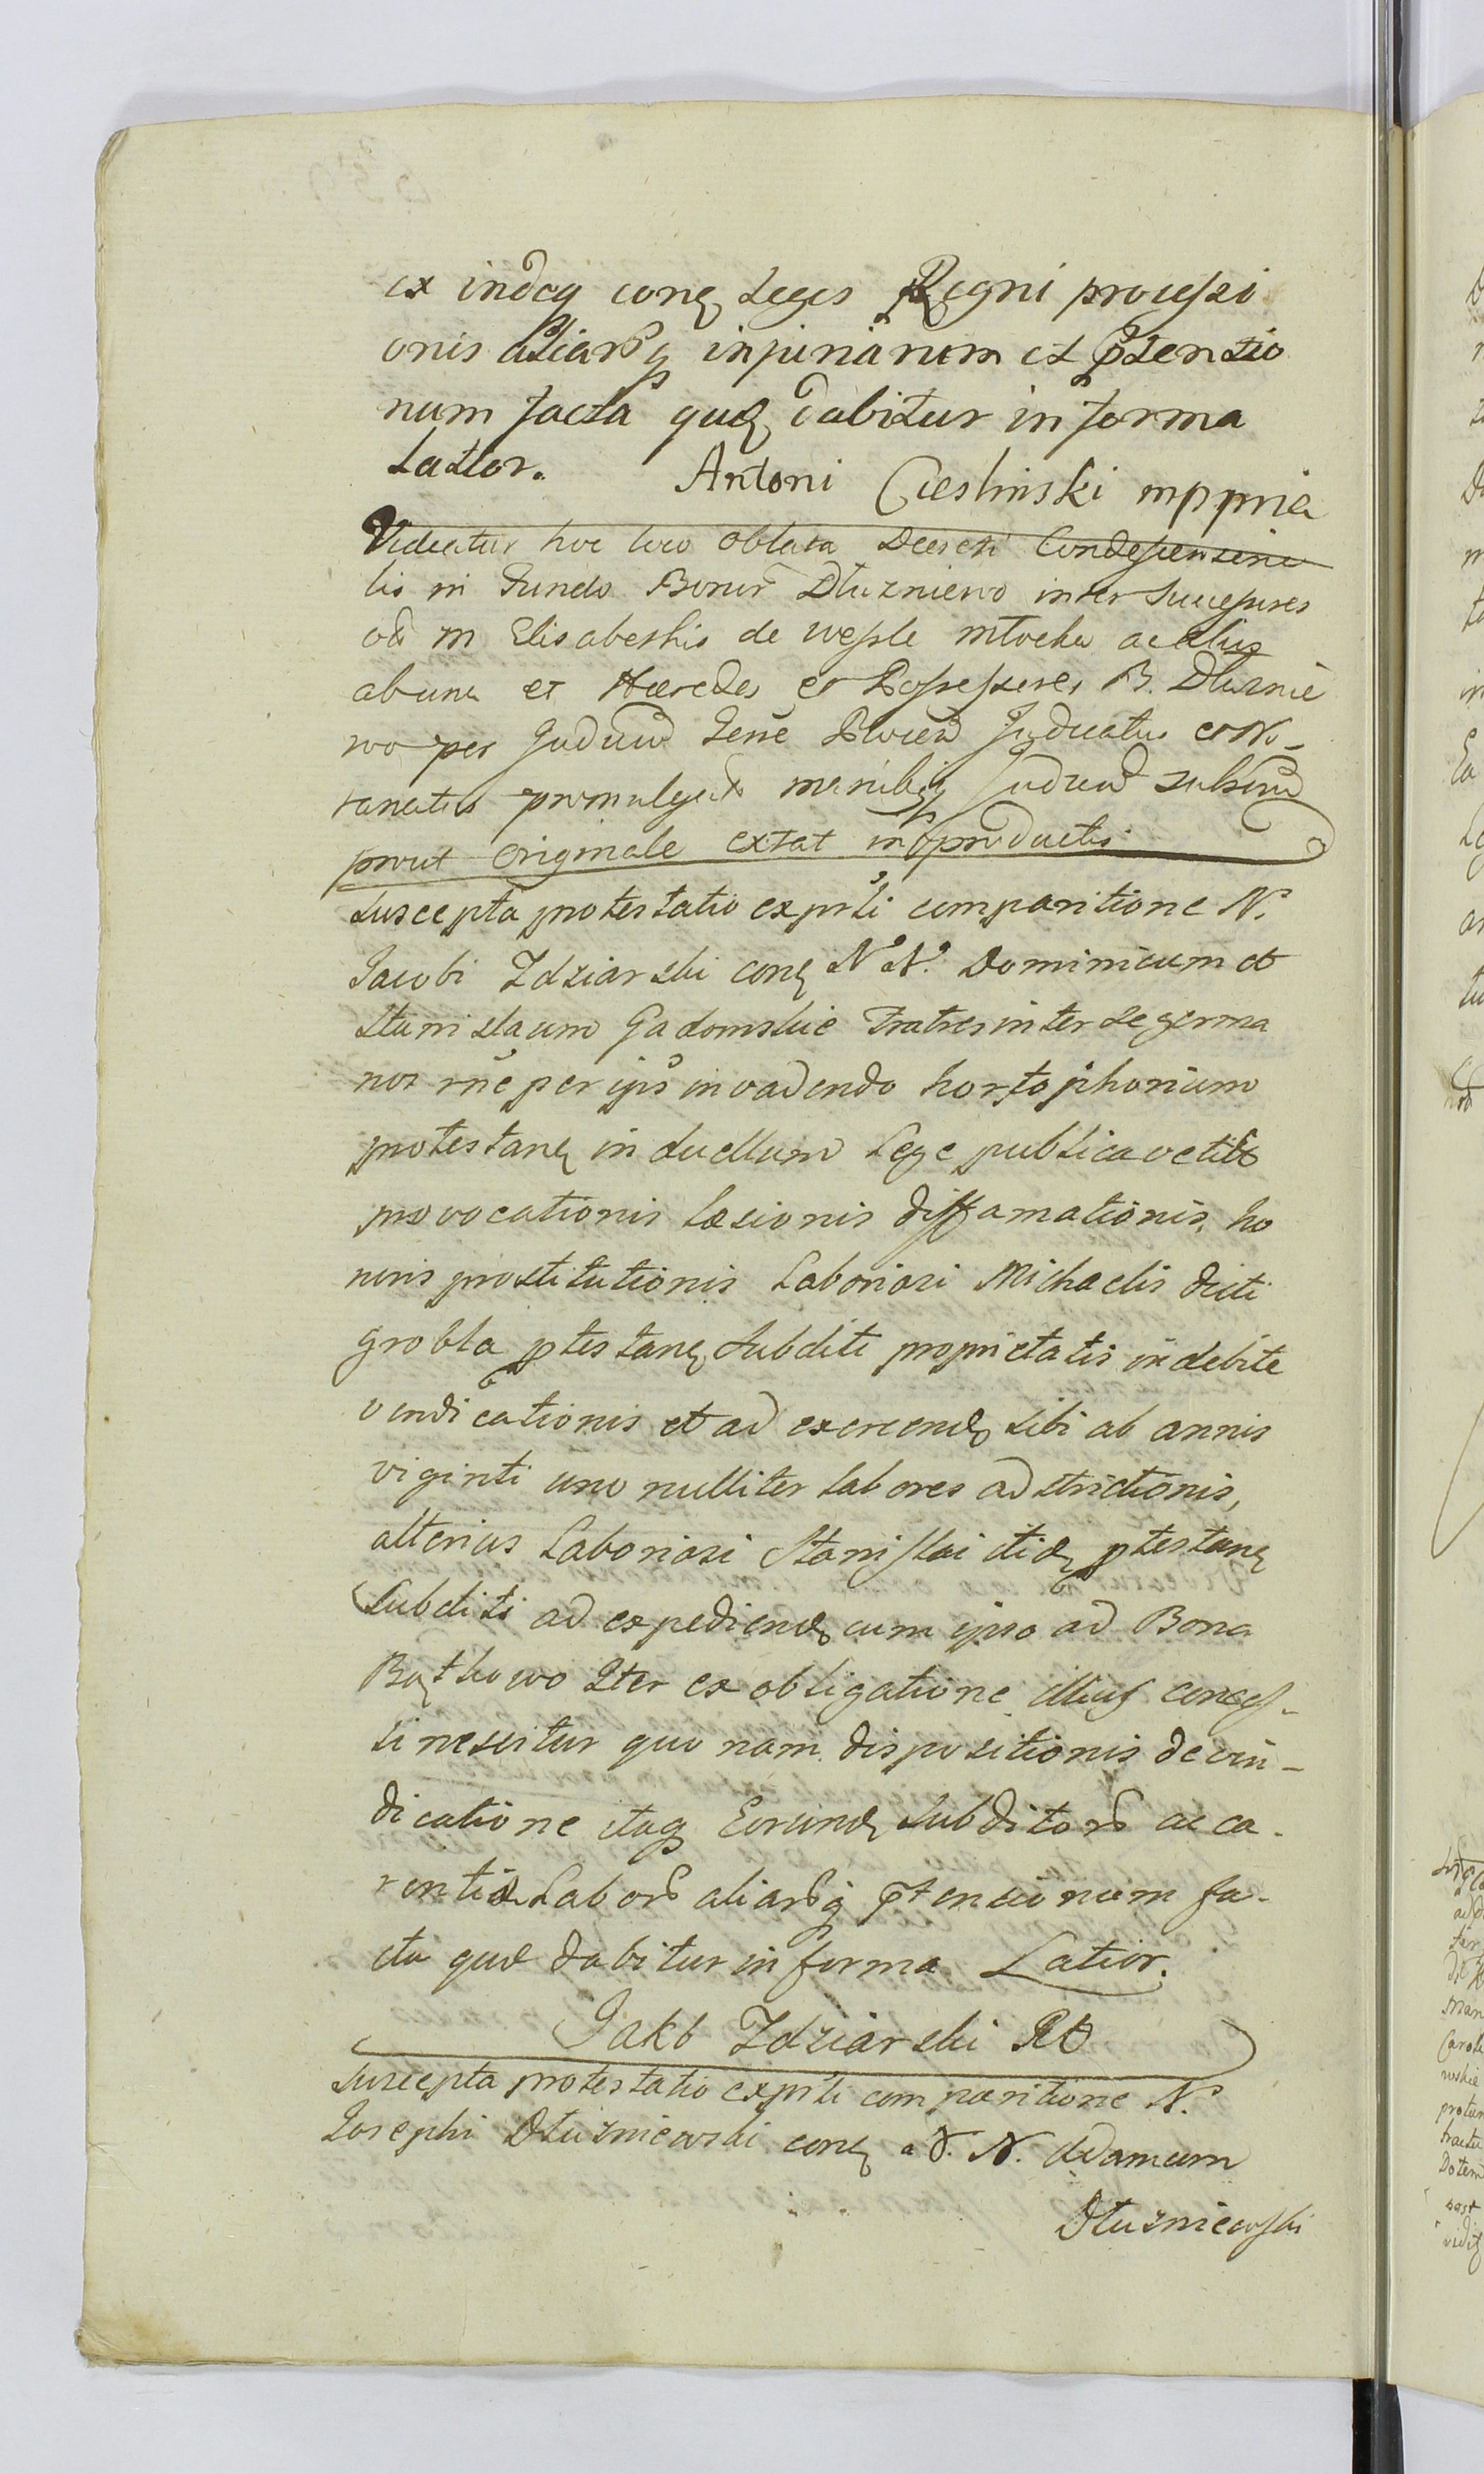 ex indeq conq Leges Regni processi
onis aliarq injuriarum et ptensio
num facta quæ dabitur in forma
Latior. Antoni Cieslinski mppria
Videatur hoc loco oblata Decreti Condescensiona
lis in Fundo Bonor Dłuzniewo inter Successores
od m Elisabethis de Wessle Mtocka ac alius
ab una et Hæredes et Possessores B. Dłuznie
wo per Judiciū Terre Plocen Judicatus et No-
tariatus promulgati manibq Judicū subscri
prout Originale extat in productis
Suscepta protestatio ex psli comparitione N.
Jacobi Idziarski conq N. N. Dominicum et
Stanislaum Gadomskie Fratres inter se germa
nos rñe per ips invadendo hortophorium
protestanq in duellum Lege publica vetito
provocationis læsionis diffamationis, ho
noris prostitutionis Laboriosi Michaelis dicti
Grobla ptestanq Subditi proprietatis indebite
vendicationis et ad exercendq sibi ab annis
viginti uno nulliter labores adstrictionis,
alterius Laboriosi Stanislai itidq ptestanq
Subditi ad expediendq cum ipso ad Bona
Bątkowo Iter ex obligatione illius concess-
si nescitur quo nam dispositionis de vin-
dicatione itaq Eorundq Subditorū ac ca-
rentia Laborū aliarūq ptensionum fa-
cta quæ dabitur in forma Latior.
Jakb Idziarski Rt
Suscepta protestatio ex psli comparitione N.
Josephi Dłużniewski conq N. N. Adamum
Dłuzniewski